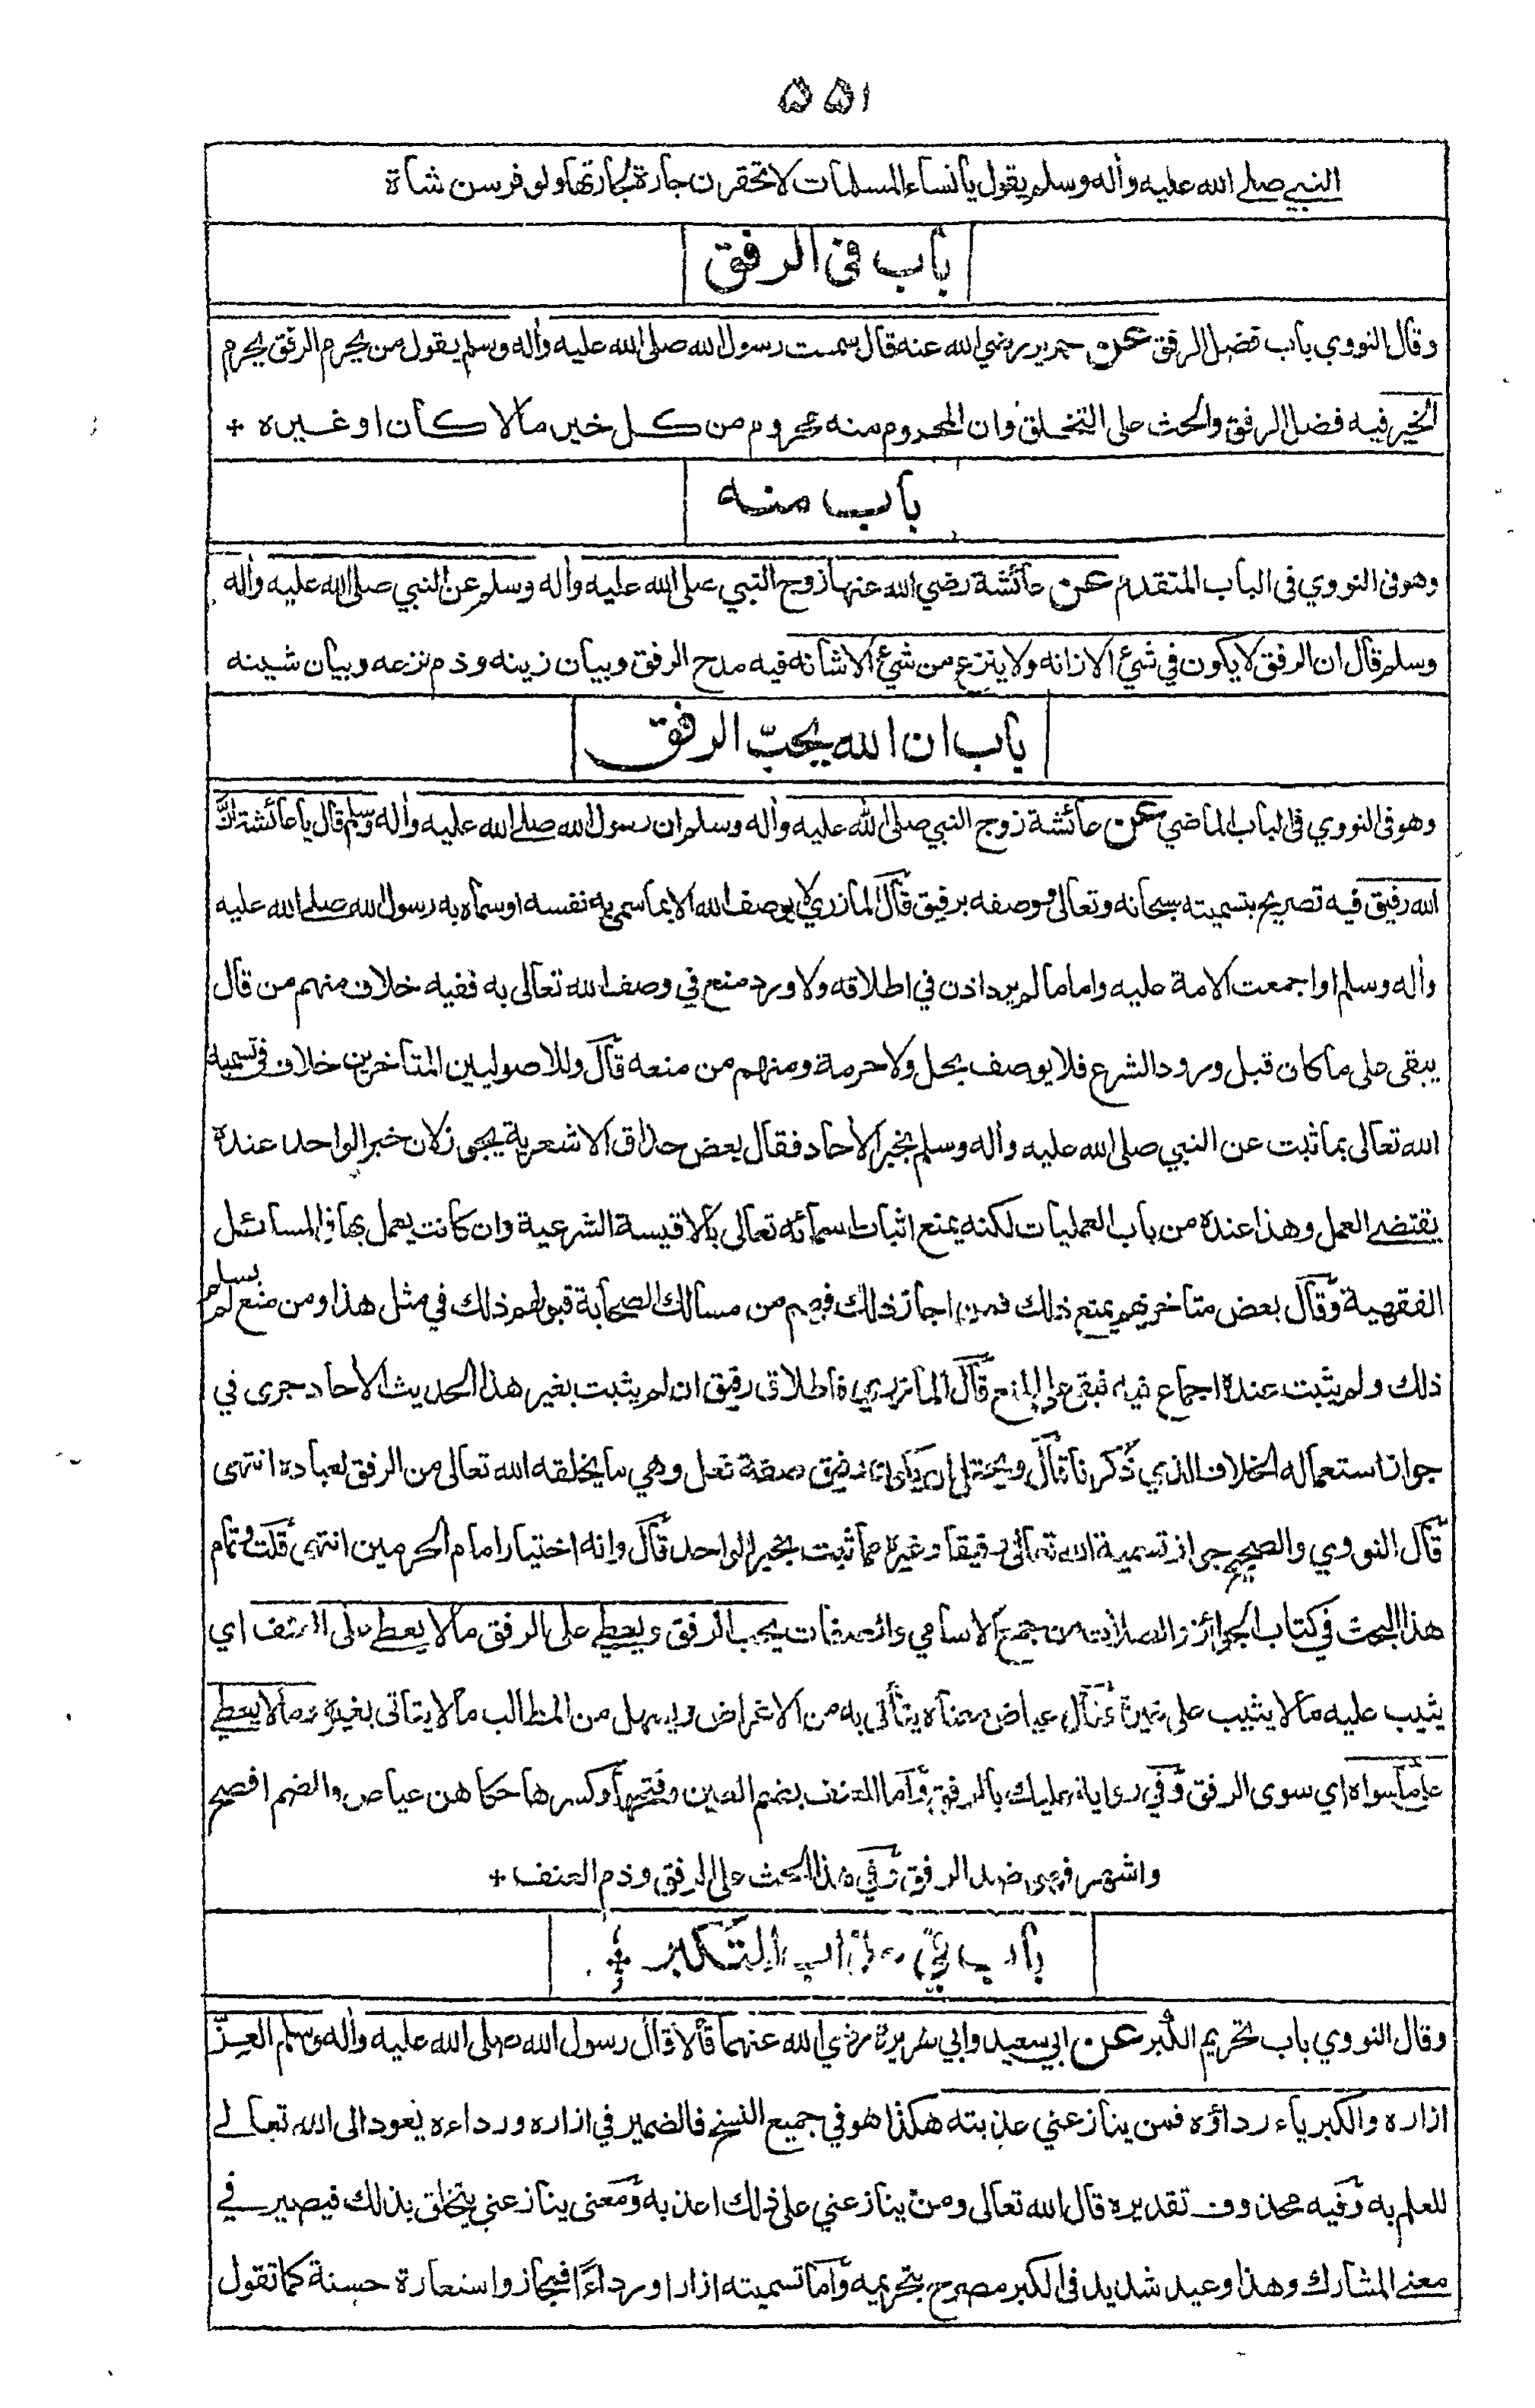 ٥٥١
النبي صلى الله عليه وأله وسلم يقول يا نساء المسلمات لا تحقرن جارة لجارتها ولو فرسن شاة
باب في الرفق
وقال النووي باب فضل الرفق عن جرير رضي الله عنه قال سمعت رسول الله صلى الله عليه وأله وسلم يقول من يحرم الرفق يحرم
الخير فيه فضل الرفق والحث على التخلق وان المحروم منه محروم من كل خير مالا كان او غيره +
باب منه
وهو في النووي في الباب المتقدم عن عائشة رضي الله عنها زوج النبي صلى الله عليه وأله وسلم عن النبي صلى الله عليه وأله
وسلم قال ان الرفق لا يكون في شيء الا زانه ولا ينزع من شيء الا شانه فيه مدح الرفق وبيان زينه وذم نزعه وبيان شينه
باب ان الله يحبّ الرفق
وهو في النووي في الباب الماضي عن عائشة زوج النبي صلى الله عليه وأله وسلم ان رسول الله صلى الله عليه وأله وسلم قال يا عائشة انَّ
الله رفيق فيه تصريح بتسميته سبحانه وتعالى ووصفه برفيق قال المازري لا يوصف الله الا بما سمى به نفسه او سماه به رسول الله صلى الله عليه
وأله وسلم او اجمعت الامة عليه واما ما لم يرد اذن في اطلاقه ولا ورد منع في وصف الله تعالى به ففيه خلاف منهم من قال
يبقى على ما كان قبل ورود الشرع فلا يوصف بحل ولا حرمة ومنهم من منعه قال وللاصوليين المتأخرين خلاف في تسمية
الله تعالى بما ثبت عن النبي صلى الله عليه وأله وسلم بخبر الأحاد فقال بعض حذاق الاشعرية يجوز لان خبر الواحد عنده
يقتضي العمل وهذا عنده من باب العمليات لكنه يمنع اثبات اسمائه تعالى بالاقيسة الشرعية وان كانت يعمل بها في المسائل
الفقهية وقال بعض متاخريهم يمنع ذلك فمن اجاز ذلك فهم من مسالك الصحابة قبولهم ذلك في مثل هذا ومن منع لم يسلم
ذلك ولم يثبت عنده اجماع فيه فبقي على المنع قال المازري فاطلاق رفيق ان لم يثبت بغير هذا الحديث الأحاد جرى في
جواز استعماله الخلاف الذي ذكرنا قال ويحتمل ان يكون رفيق صفة فعل وهي ما يخلقه الله تعالى من الرفق لعباده انتهى
قال النووي والصحيح جواز تسمية الله تعالى رفيقا وغيره مما ثبت بخبر الواحد قال وانه اختيار امام الحرمين انتهى قلت وتمام
هذا البحث في كتاب الجوائز والصلات من جمع الاسامي والصفات يحب الرفق ويعطي على الرفق مالا يعطي على العنف اي
يثيب عليه مالا يثيب على غيره قال عياض معناه يتأتى به من الاغراض ويسهل من المطالب مالا يتاتى بغيره ومالا يعطي
على ما سواه اي سوى الرفق وفي رواية عليك بالرفق واما العنف بضم العين وفتحها وكسرها حكاهن عياض والضم افصح
واشهر فهو ضد الرفق وفي هذا الحث على الرفق وذم العنف +
باب في عذاب التكبر
وقال النووي باب تحريم الكبر عن ابي سعيد وابي هريرة رضي الله عنهما قالا قال رسول الله صلى الله عليه وأله وسلم العزّ
ازاره والكبرياء رداؤه فمن ينازعني عذبته هكذا هو في جميع النسخ فالضمير في ازاره ورداءه يعود الى الله تعالى
للعلم به وفيه محذوف تقديره قال الله تعالى ومن ينازعني على ذلك اعذبه ومعنى ينازعني يتخلق بذلك فيصير في
معنى المشارك وهذا وعيد شديد في الكبر مصرح بتحريمه واما تسميته ازارا ورداءً فمجاز واستعارة حسنة كما تقول